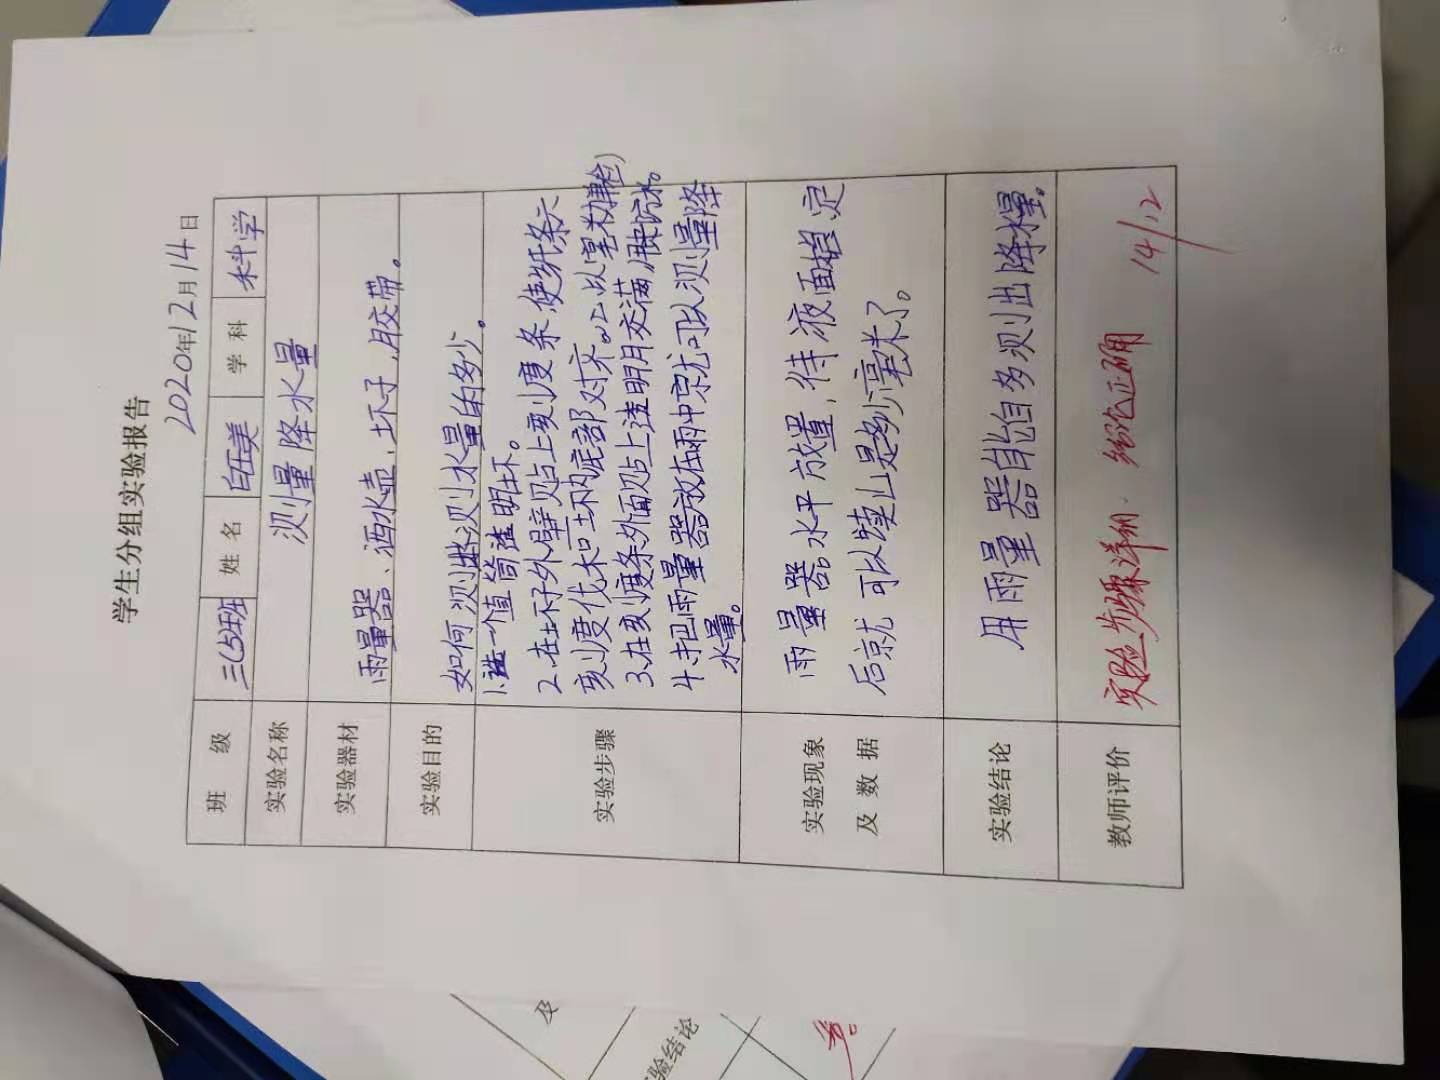 学生分组实验报告
2020年12月14日
班 级 三(5)班 姓 名 学 科 科学
实验名称 测量降水量
实验器材 雨量器、洒水壶,坏子,胶带。
实验目的 如何测水量的多少。
实验步骤 1.选一个直筒透明坏。
2.在坏子外壁贴上刻度条 使纸条
刻度 坏内底部对齐。以毫
3.在刻度条外面贴上透明胶 防水。
4.把雨量器放在雨中就可以测量降
水量。
实验现象 雨量器水平放置,待液面稳定
及 数 据 后就可以读出是多少毫米了。
实验结论 用雨量器能测出降水量。
教师评价 实验步骤详细. 结论正确 14/12
及
验结论